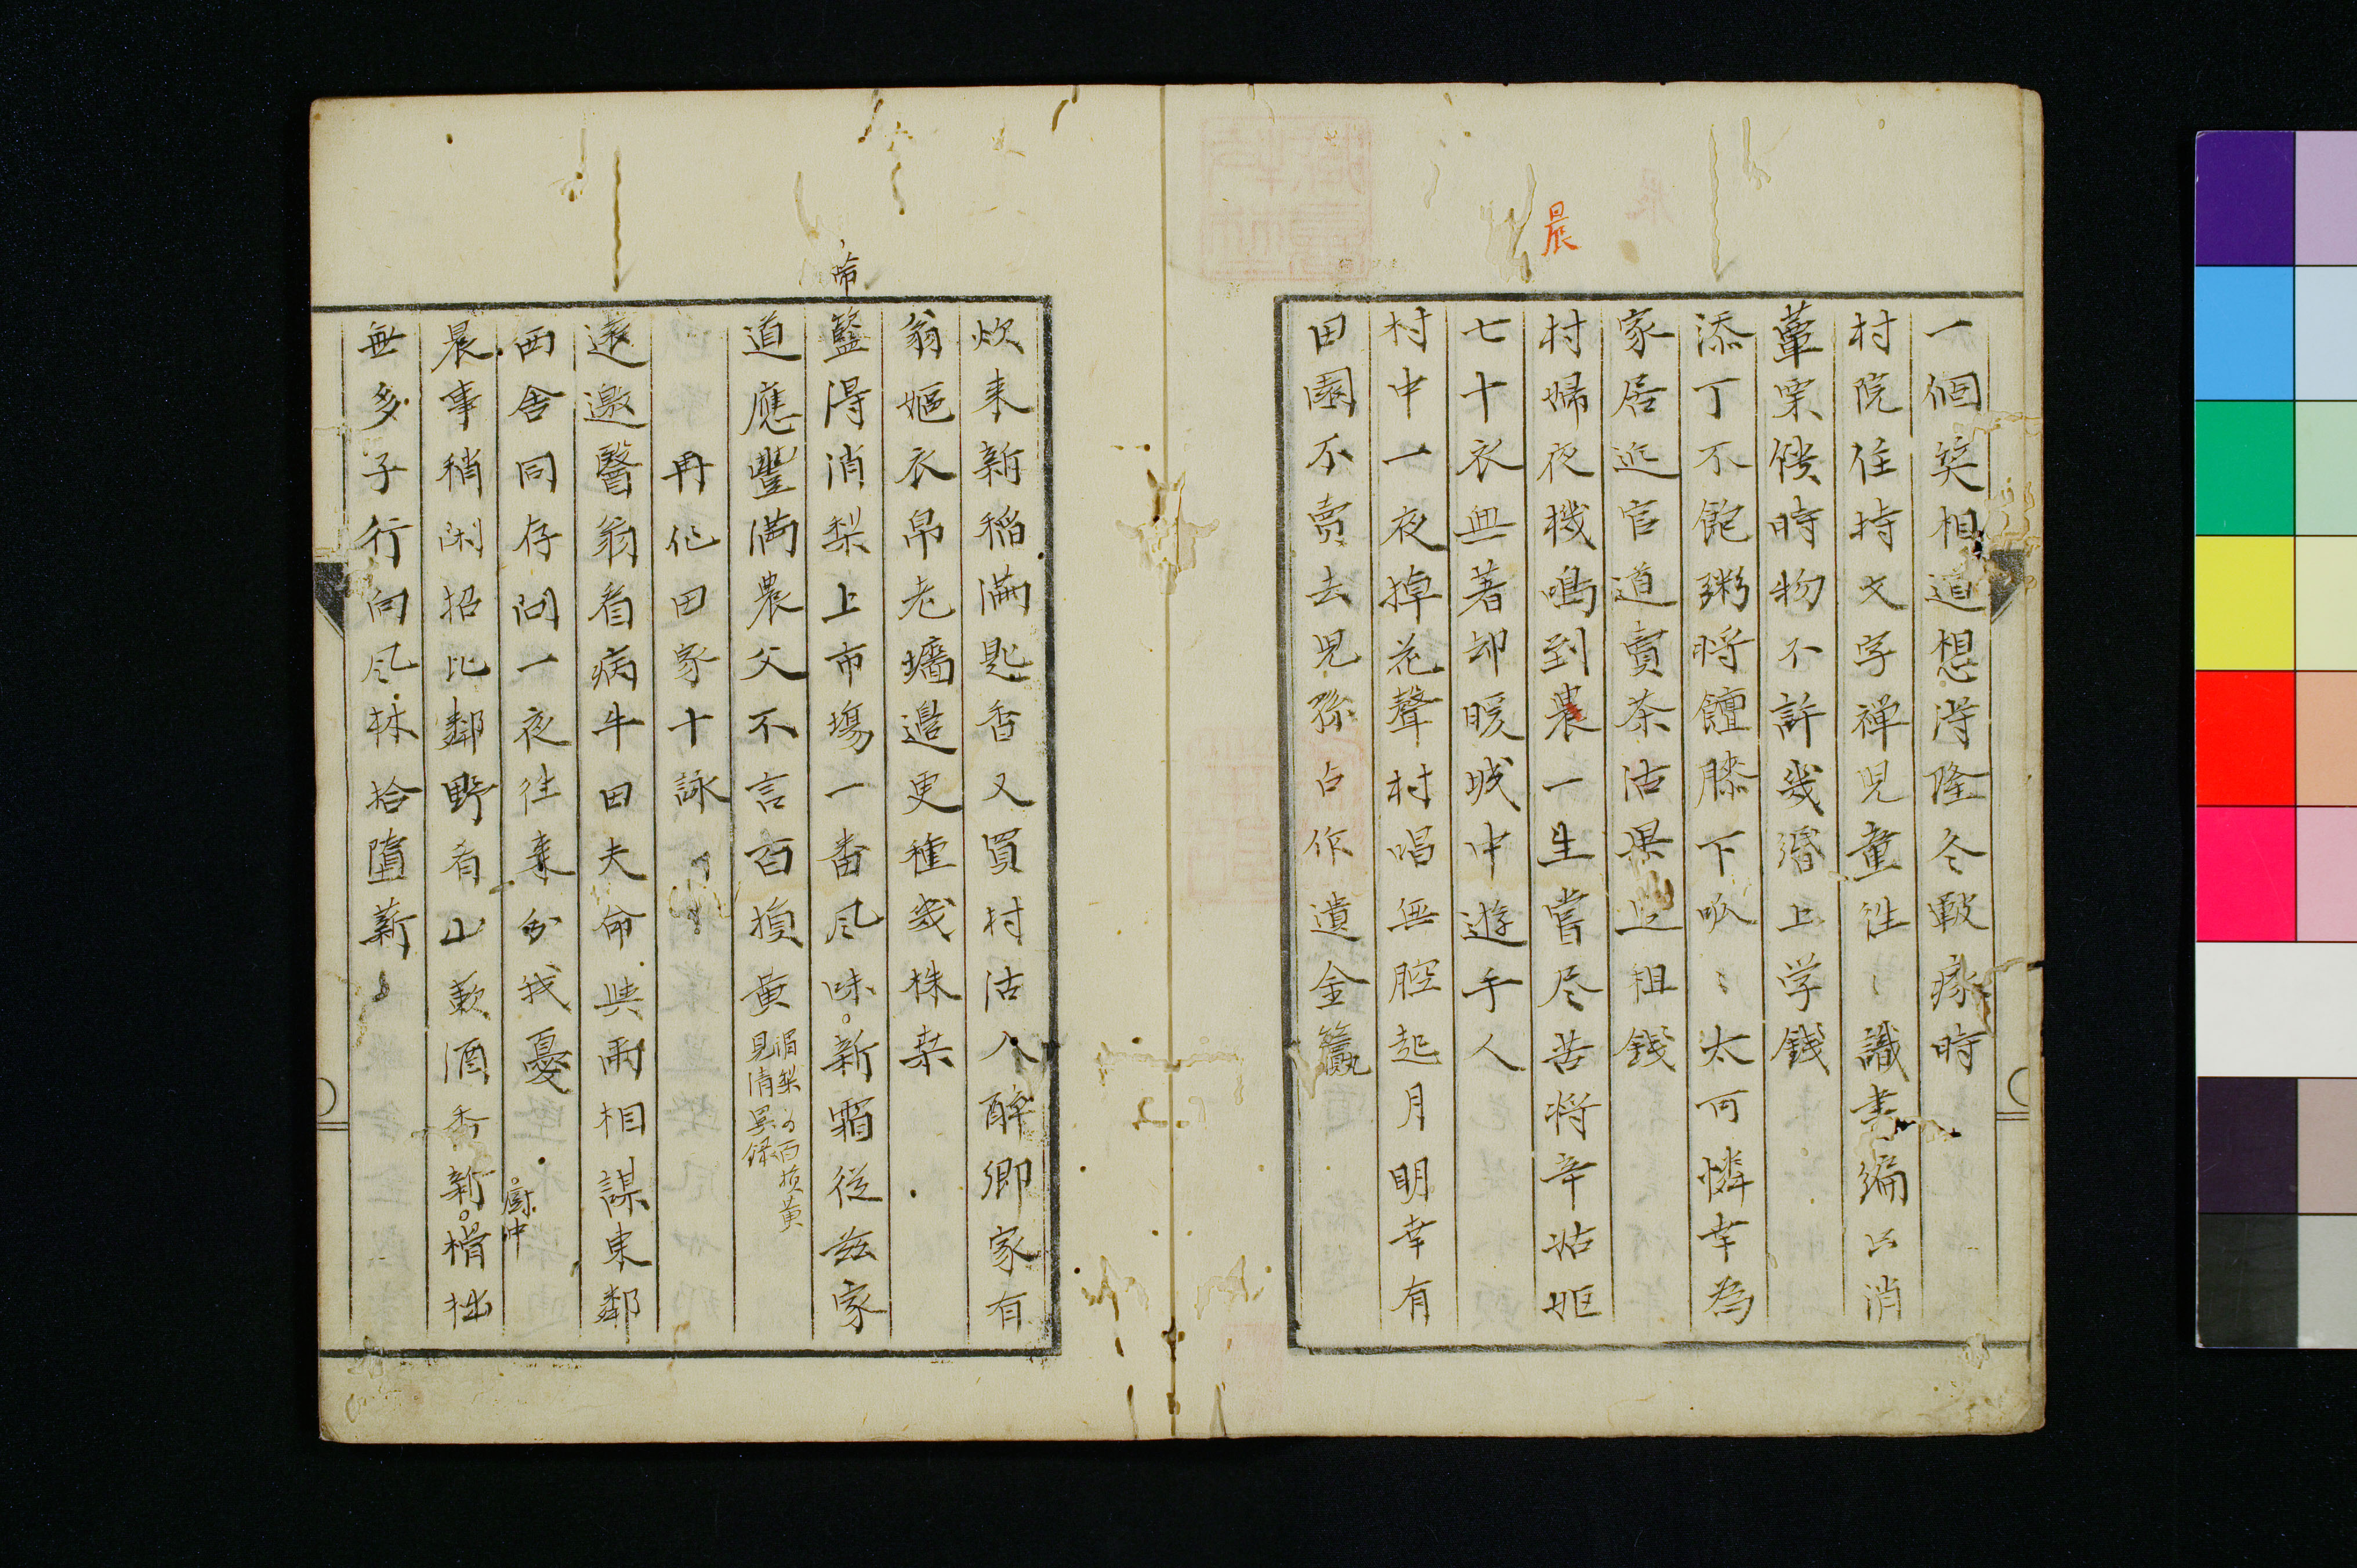 晨
一個笑相逗想得隆冬皸瘃時
村院住持文字禅児童往〻識書編只消
葷栗餞時物不許幾緡上学銭
添丁不飽粥将饘膝下呱〻太可憐幸為
家居近官道賣茶沽果足租銭
村婦夜機鳴到農一生嘗尽苦将辛姑姬
七十衣無著却暖城中遊手人
村中一夜掉花聲村唱無腔起月明幸有
田園不賣去児孫占作遺金籯
啼
炊来新稲満匙香又買村沽入酔郷家有
翁嫗衣帛老墻邉更種幾株桒
籃得消梨上市塲一番風味新霜従茲家
道應豐満農父不言百損黄
消梨名百損黄
見清異録
再作田家十詠
遠邀醫翁看病牛田夫命與兩相謀東鄰
西舎同存問一夜往来分我憂
厨中
晨事稍閑招比鄰野肴山蔌酒香新榾柮
無多子行向風林拾墮薪